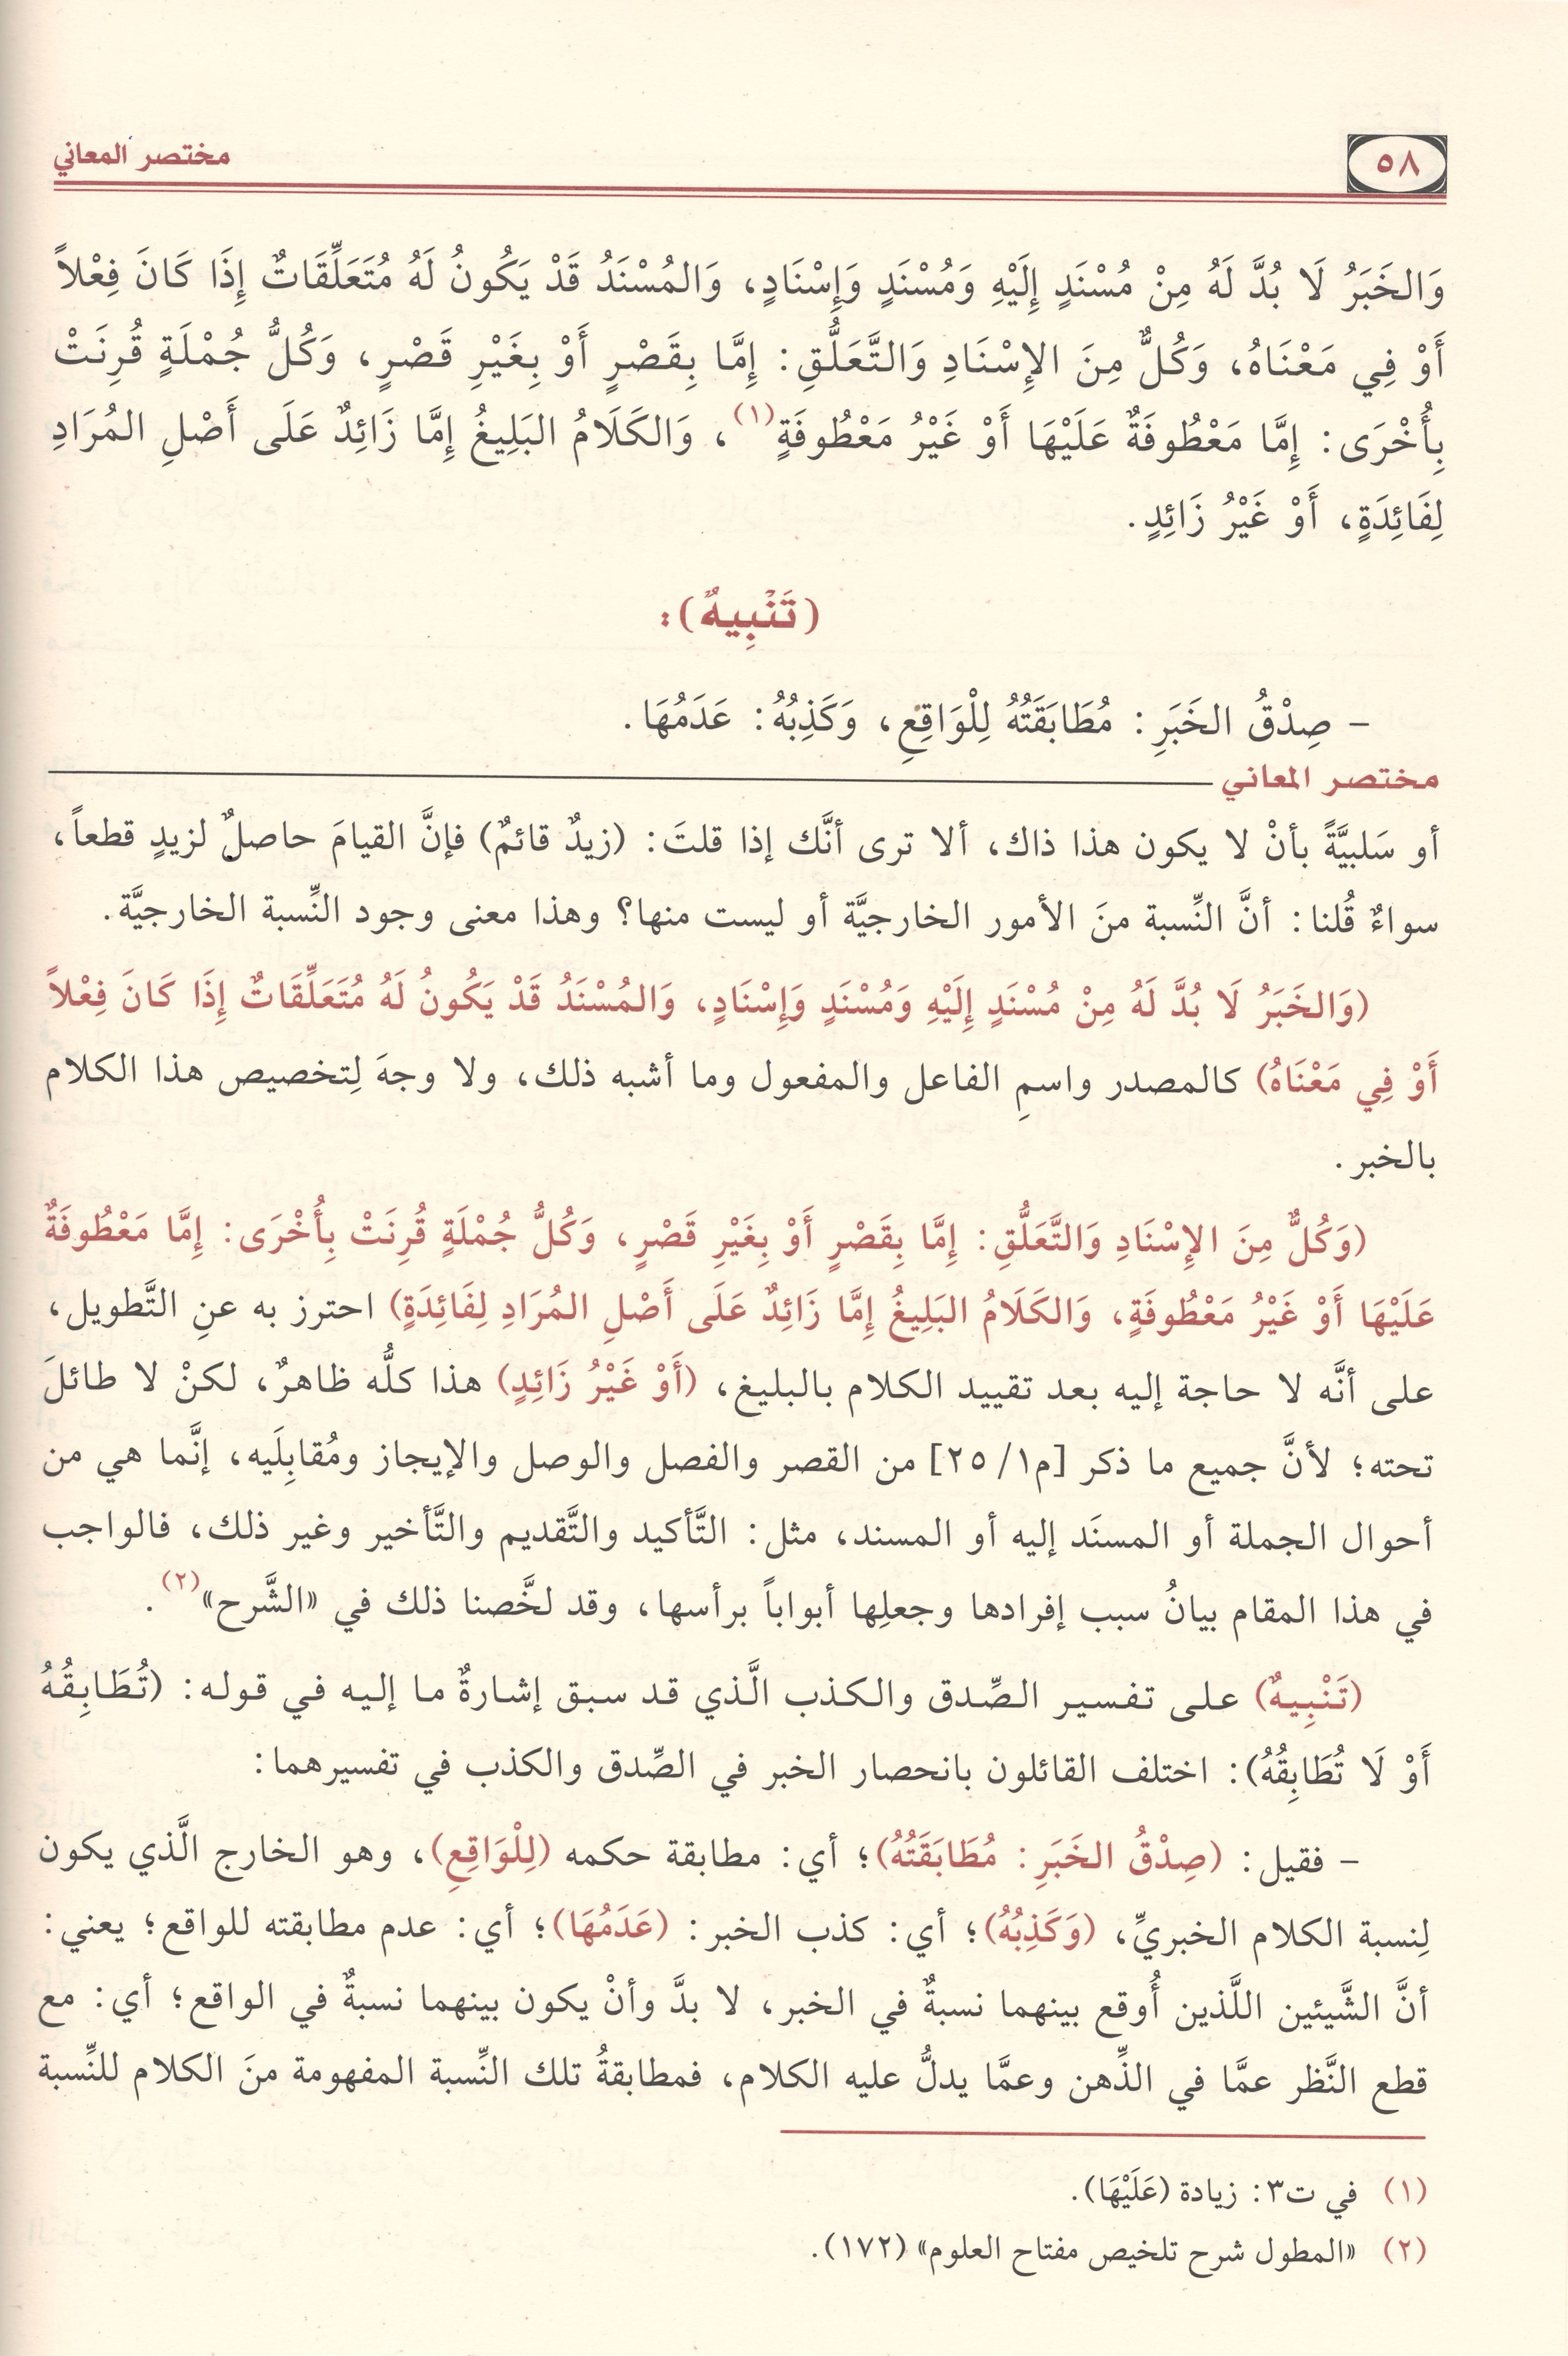 ٥٨
مختصر المعاني
وَالخَبَرُ لَا بُدَّ لَهُ مِنْ مُسْنَدٍ إِلَيْهِ وَمُسْنَدٍ وَإِسْنَادٍ، وَالمُسْنَدُ قَدْ يَكُونُ لَهُ مُتَعَلِّقَاتٌ إِذَا كَانَ فِعْلاً
أَوْ فِي مَعْنَاهُ، وَكُلٌّ مِنَ الإِسْنَادِ وَالتَّعَلُّقِ: إِمَّا بِقَصْرٍ أَوْ بِغَيْرِ قَصْرٍ، وَكُلُّ جُمْلَةٍ قُرِنَتْ
بِأُخْرَى: إِمَّا مَعْطُوفَةٌ عَلَيْهَا أَوْ غَيْرُ مَعْطُوفَةٍ(١)، وَالكَلَامُ البَلِيغُ إِمَّا زَائِدٌ عَلَى أَصْلِ المُرَادِ
لِفَائِدَةٍ، أَوْ غَيْرُ زَائِدٍ.
(تَنْبِيهٌ):
- صِدْقُ الخَبَرِ: مُطَابَقَتُهُ لِلْوَاقِعِ، وَكَذِبُهُ: عَدَمُهَا.
مختصر المعاني
أو سَلبيَّةً بأنْ لا يكون هذا ذاك، ألا ترى أنَّك إذا قلتَ: (زيدٌ قائمٌ) فإنَّ القيامَ حاصلٌ لزيدٍ قطعاً،
سواءٌ قُلنا: أنَّ النِّسبة منَ الأمور الخارجيَّة أو ليست منها؟ وهذا معنى وجود النِّسبة الخارجيَّة.
(وَالخَبَرُ لَا بُدَّ لَهُ مِنْ مُسْنَدٍ إِلَيْهِ وَمُسْنَدٍ وَإِسْنَادٍ، وَالمُسْنَدُ قَدْ يَكُونُ لَهُ مُتَعَلِّقَاتٌ إِذَا كَانَ فِعْلاً
أَوْ فِي مَعْنَاهُ) كالمصدر واسمِ الفاعل والمفعول وما أشبه ذلك، ولا وجهَ لِتخصيص هذا الكلام
بالخبر.
(وَكُلٌّ مِنَ الإِسْنَادِ وَالتَّعَلُّقِ: إِمَّا بِقَصْرٍ أَوْ بِغَيْرِ قَصْرٍ، وَكُلُّ جُمْلَةٍ قُرِنَتْ بِأُخْرَى: إِمَّا مَعْطُوفَةٌ
عَلَيْهَا أَوْ غَيْرُ مَعْطُوفَةٍ، وَالكَلَامُ البَلِيغُ إِمَّا زَائِدٌ عَلَى أَصْلِ المُرَادِ لِفَائِدَةٍ) احترز به عنِ التَّطويل،
على أنَّه لا حاجة إليه بعد تقييد الكلام بالبليغ، (أَوْ غَيْرُ زَائِدٍ) هذا كلُّه ظاهرٌ، لكنْ لا طائلَ
تحته؛ لأنَّ جميع ما ذكر [م١/ ٢٥] من القصر والفصل والوصل والإيجاز ومُقابِلَيه، إنَّما هي من
أحوال الجملة أو المسنَد إليه أو المسند، مثل: التَّأكيد والتَّقديم والتَّأخير وغير ذلك، فالواجب
في هذا المقام بيانُ سبب إفرادها وجعلِها أبواباً برأسها، وقد لخَّصنا ذلك في «الشَّرح»(٢).
(تَنْبِيهٌ) على تفسير الصِّدق والكذب الَّذي قد سبق إشارةٌ ما إليه في قوله: (تُطَابِقُهُ
أَوْ لَا تُطَابِقُهُ): اختلف القائلون بانحصار الخبر في الصِّدق والكذب في تفسيرهما:
- فقيل: (صِدْقُ الخَبَرِ: مُطَابَقَتُهُ)؛ أي: مطابقة حكمه (لِلْوَاقِعِ)، وهو الخارج الَّذي يكون
لِنسبة الكلام الخبريِّ، (وَكَذِبُهُ)؛ أي: كذب الخبر: (عَدَمُهَا)؛ أي: عدم مطابقته للواقع؛ يعني:
أنَّ الشَّيئين اللَّذين أُوقع بينهما نسبةٌ في الخبر، لا بدَّ وأنْ يكون بينهما نسبةٌ في الواقع؛ أي: مع
قطع النَّظر عمَّا في الذِّهن وعمَّا يدلُّ عليه الكلام، فمطابقةُ تلك النِّسبة المفهومة منَ الكلام للنِّسبة
(١) في ت٣: زيادة (عَلَيْهَا).
(٢) «المطول شرح تلخيص مفتاح العلوم» (١٧٢).